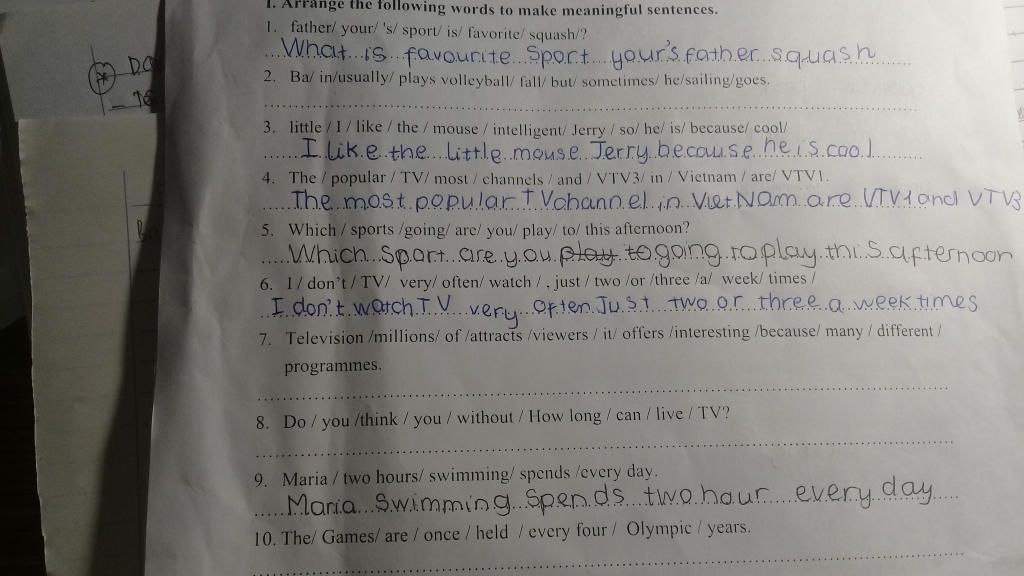 I. Arrange the following words to make meaningful sentences.
1. father/ your/ 's/ sport/ is/ favorite/ squash/?
What is favourite Sport your's father squash
2. Ba/ in/usually/ plays volleyball/ fall/ but/ sometimes/ he/sailing/goes.
3. little / I / like / the / mouse / intelligent/ Jerry / so/ he/ is/ because/ cool/
I like the little mouse Jerry because he is cool
4. The / popular / TV/ most / channels / and / VTV3/ in / Vietnam / are/ VTV1.
The most popular TV channel in Viet Nam are VTV1 and VTV3
5. Which / sports /going/ are/ you/ play/ to/ this afternoon?
Which Sport are you play to going to play this afternoon
6. I / don't / TV/ very/ often/ watch / , just / two /or /three /a/ week/ times /
I don't watch TV very often Just two or three a week times
7. Television /millions/ of /attracts /viewers / it/ offers /interesting /because/ many / different /
programmes.
8. Do / you /think / you / without / How long / can / live / TV?
9. Maria / two hours/ swimming/ spends /every day.
Maria Swimming Spends two hour every day
10. The/ Games/ are / once / held / every four / Olympic / years.